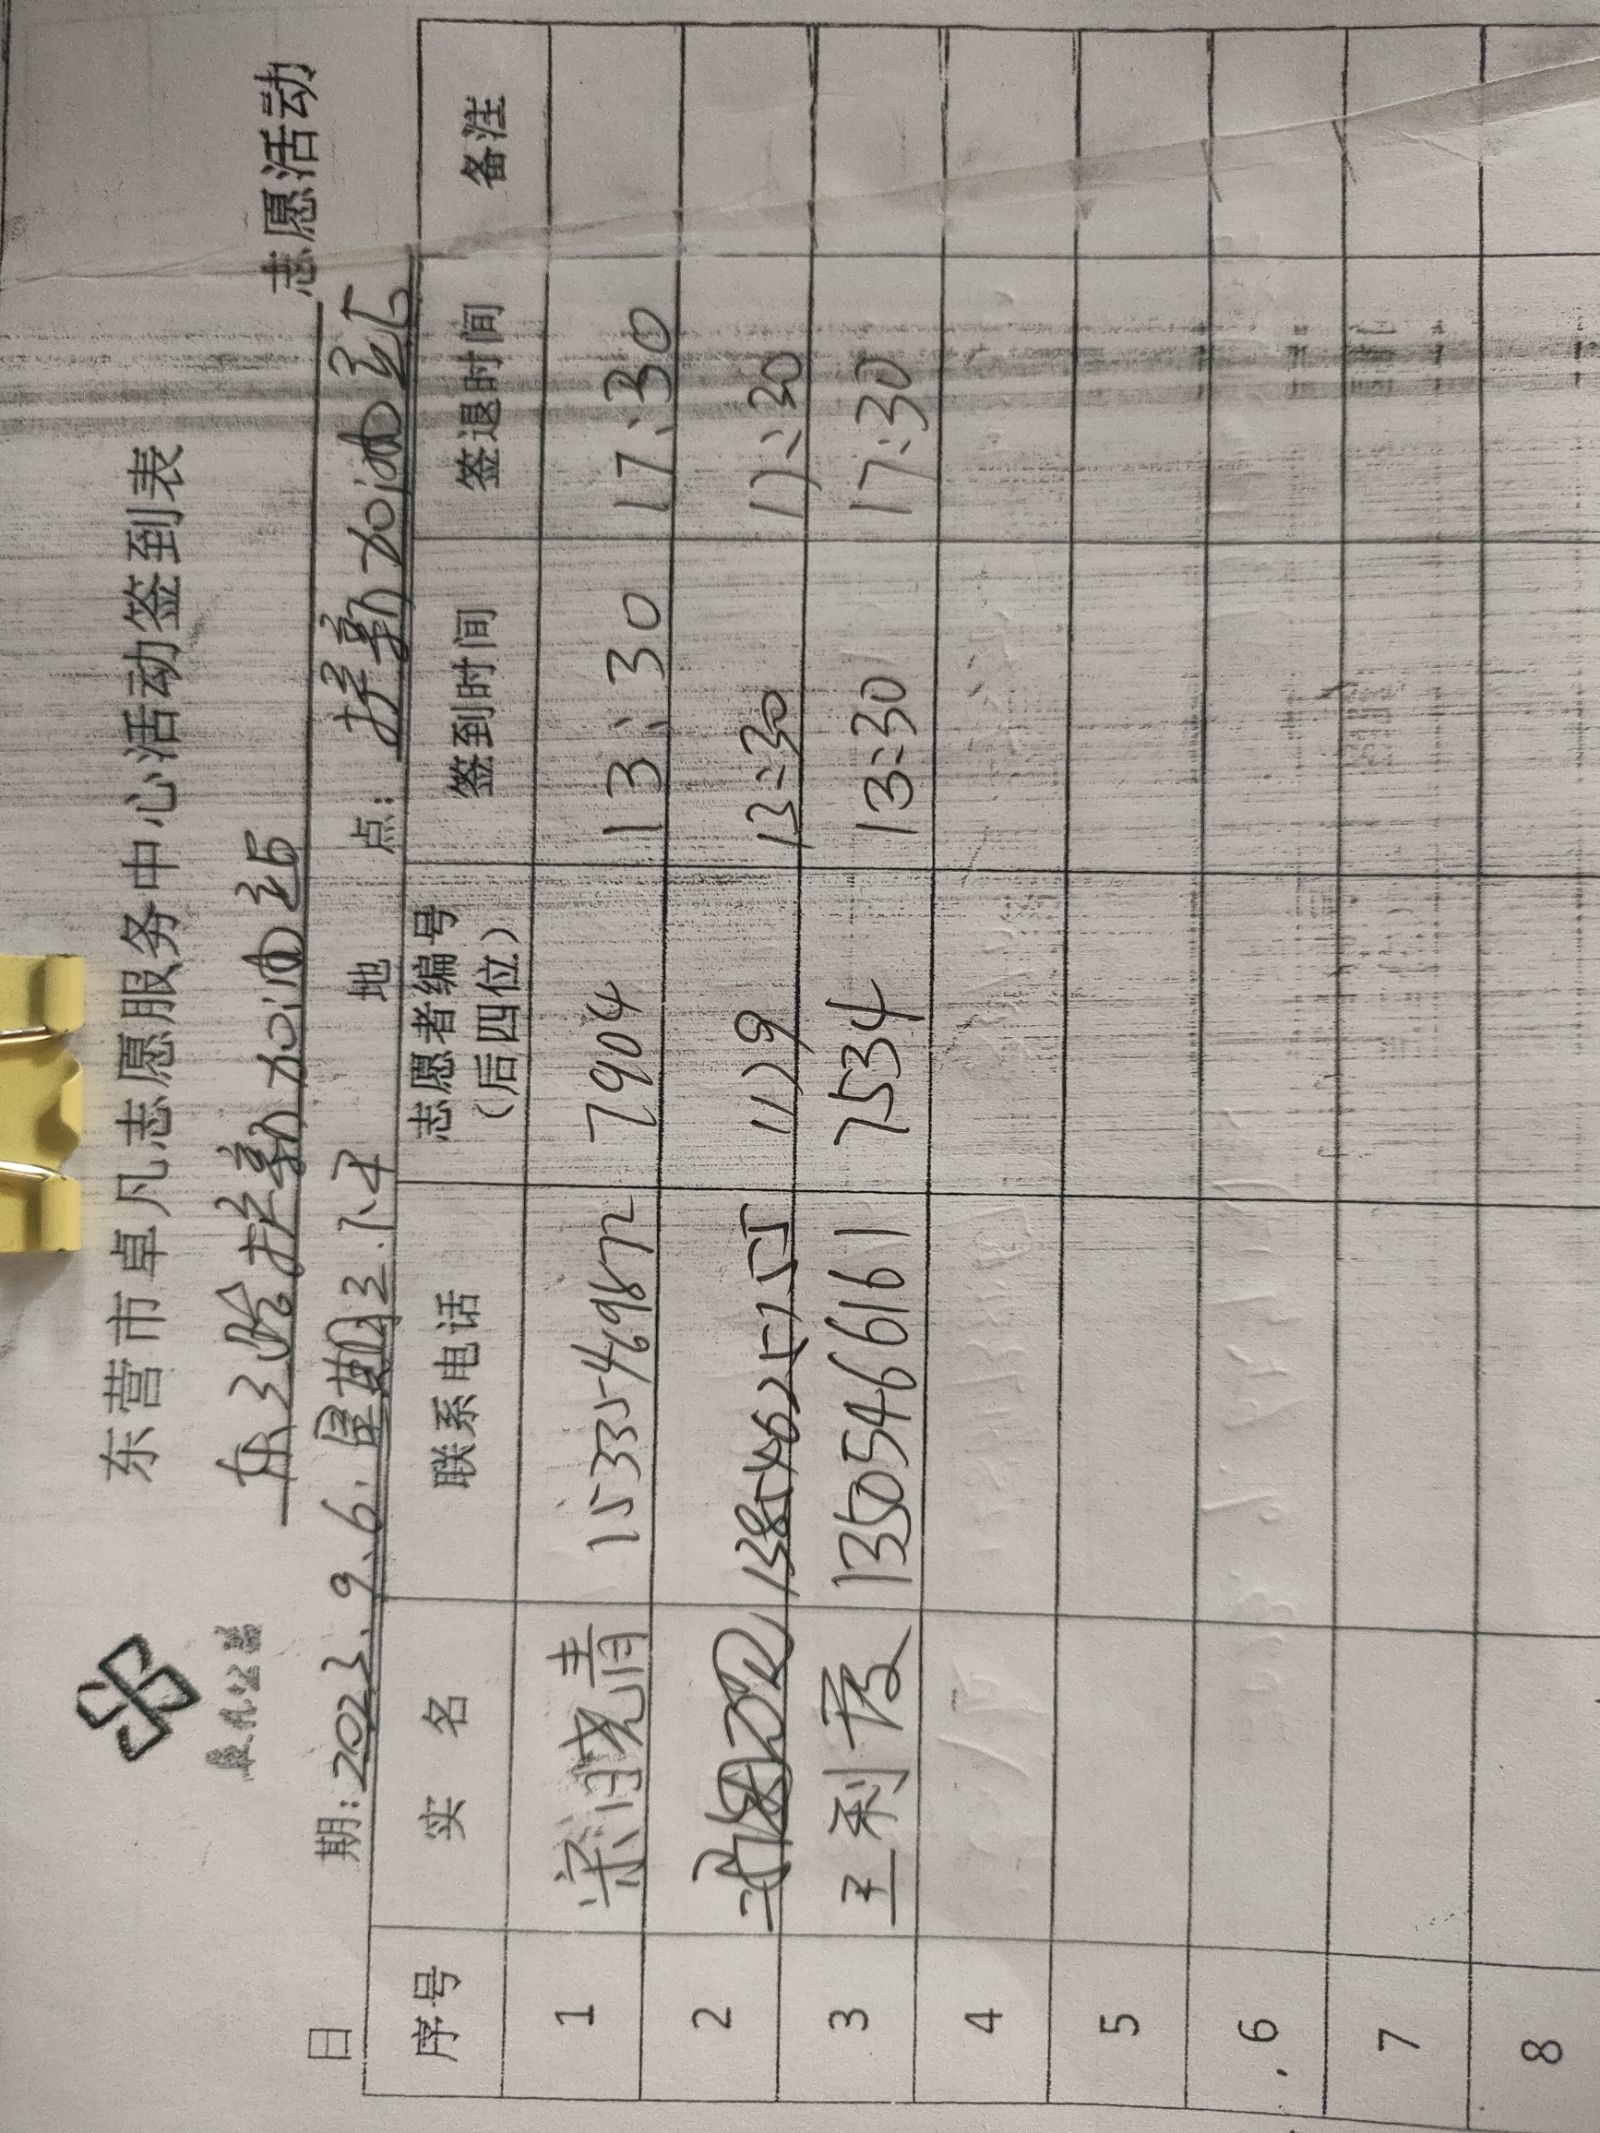 东营市卓凡志愿服务中心活动签到表
东三路护航加油站 志愿活动
日期：2023.9.6.星期三.下午 地点：护航加油站
序号 实名 联系电话 志愿者编号（后四位） 签到时间 签退时间 备注
1 梁晓青 15335469872 7904 13:30 17:30
2 13854625755 1179 13:30 17:30
3 王利 13505466161 7534 13:30 17:30
4
5
6
7
8